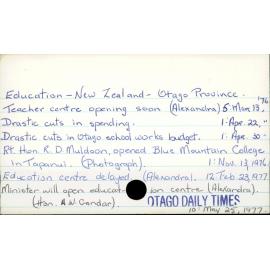 Education - New Zealand - Otago Province.
Teacher centre opening soon (Alexandra) 5: Mar 13, '76
Drastic cuts in spending. 1: Apr. 22, "
Drastic cuts in Otago school works budget. 1: Apr. 30 -
Rt. Hon. R. D. Muldoon, opened Blue Mountain College
in Tapanui. (Photograph). 1: Nov. 13, 1976
Education centre delayed (Alexandra). 12 Feb 23, 1977
Minister will open education centre (Alexandra).
(Hon. A. W. Gandar). OTAGO DAILY TIMES
10: May 25, 1977